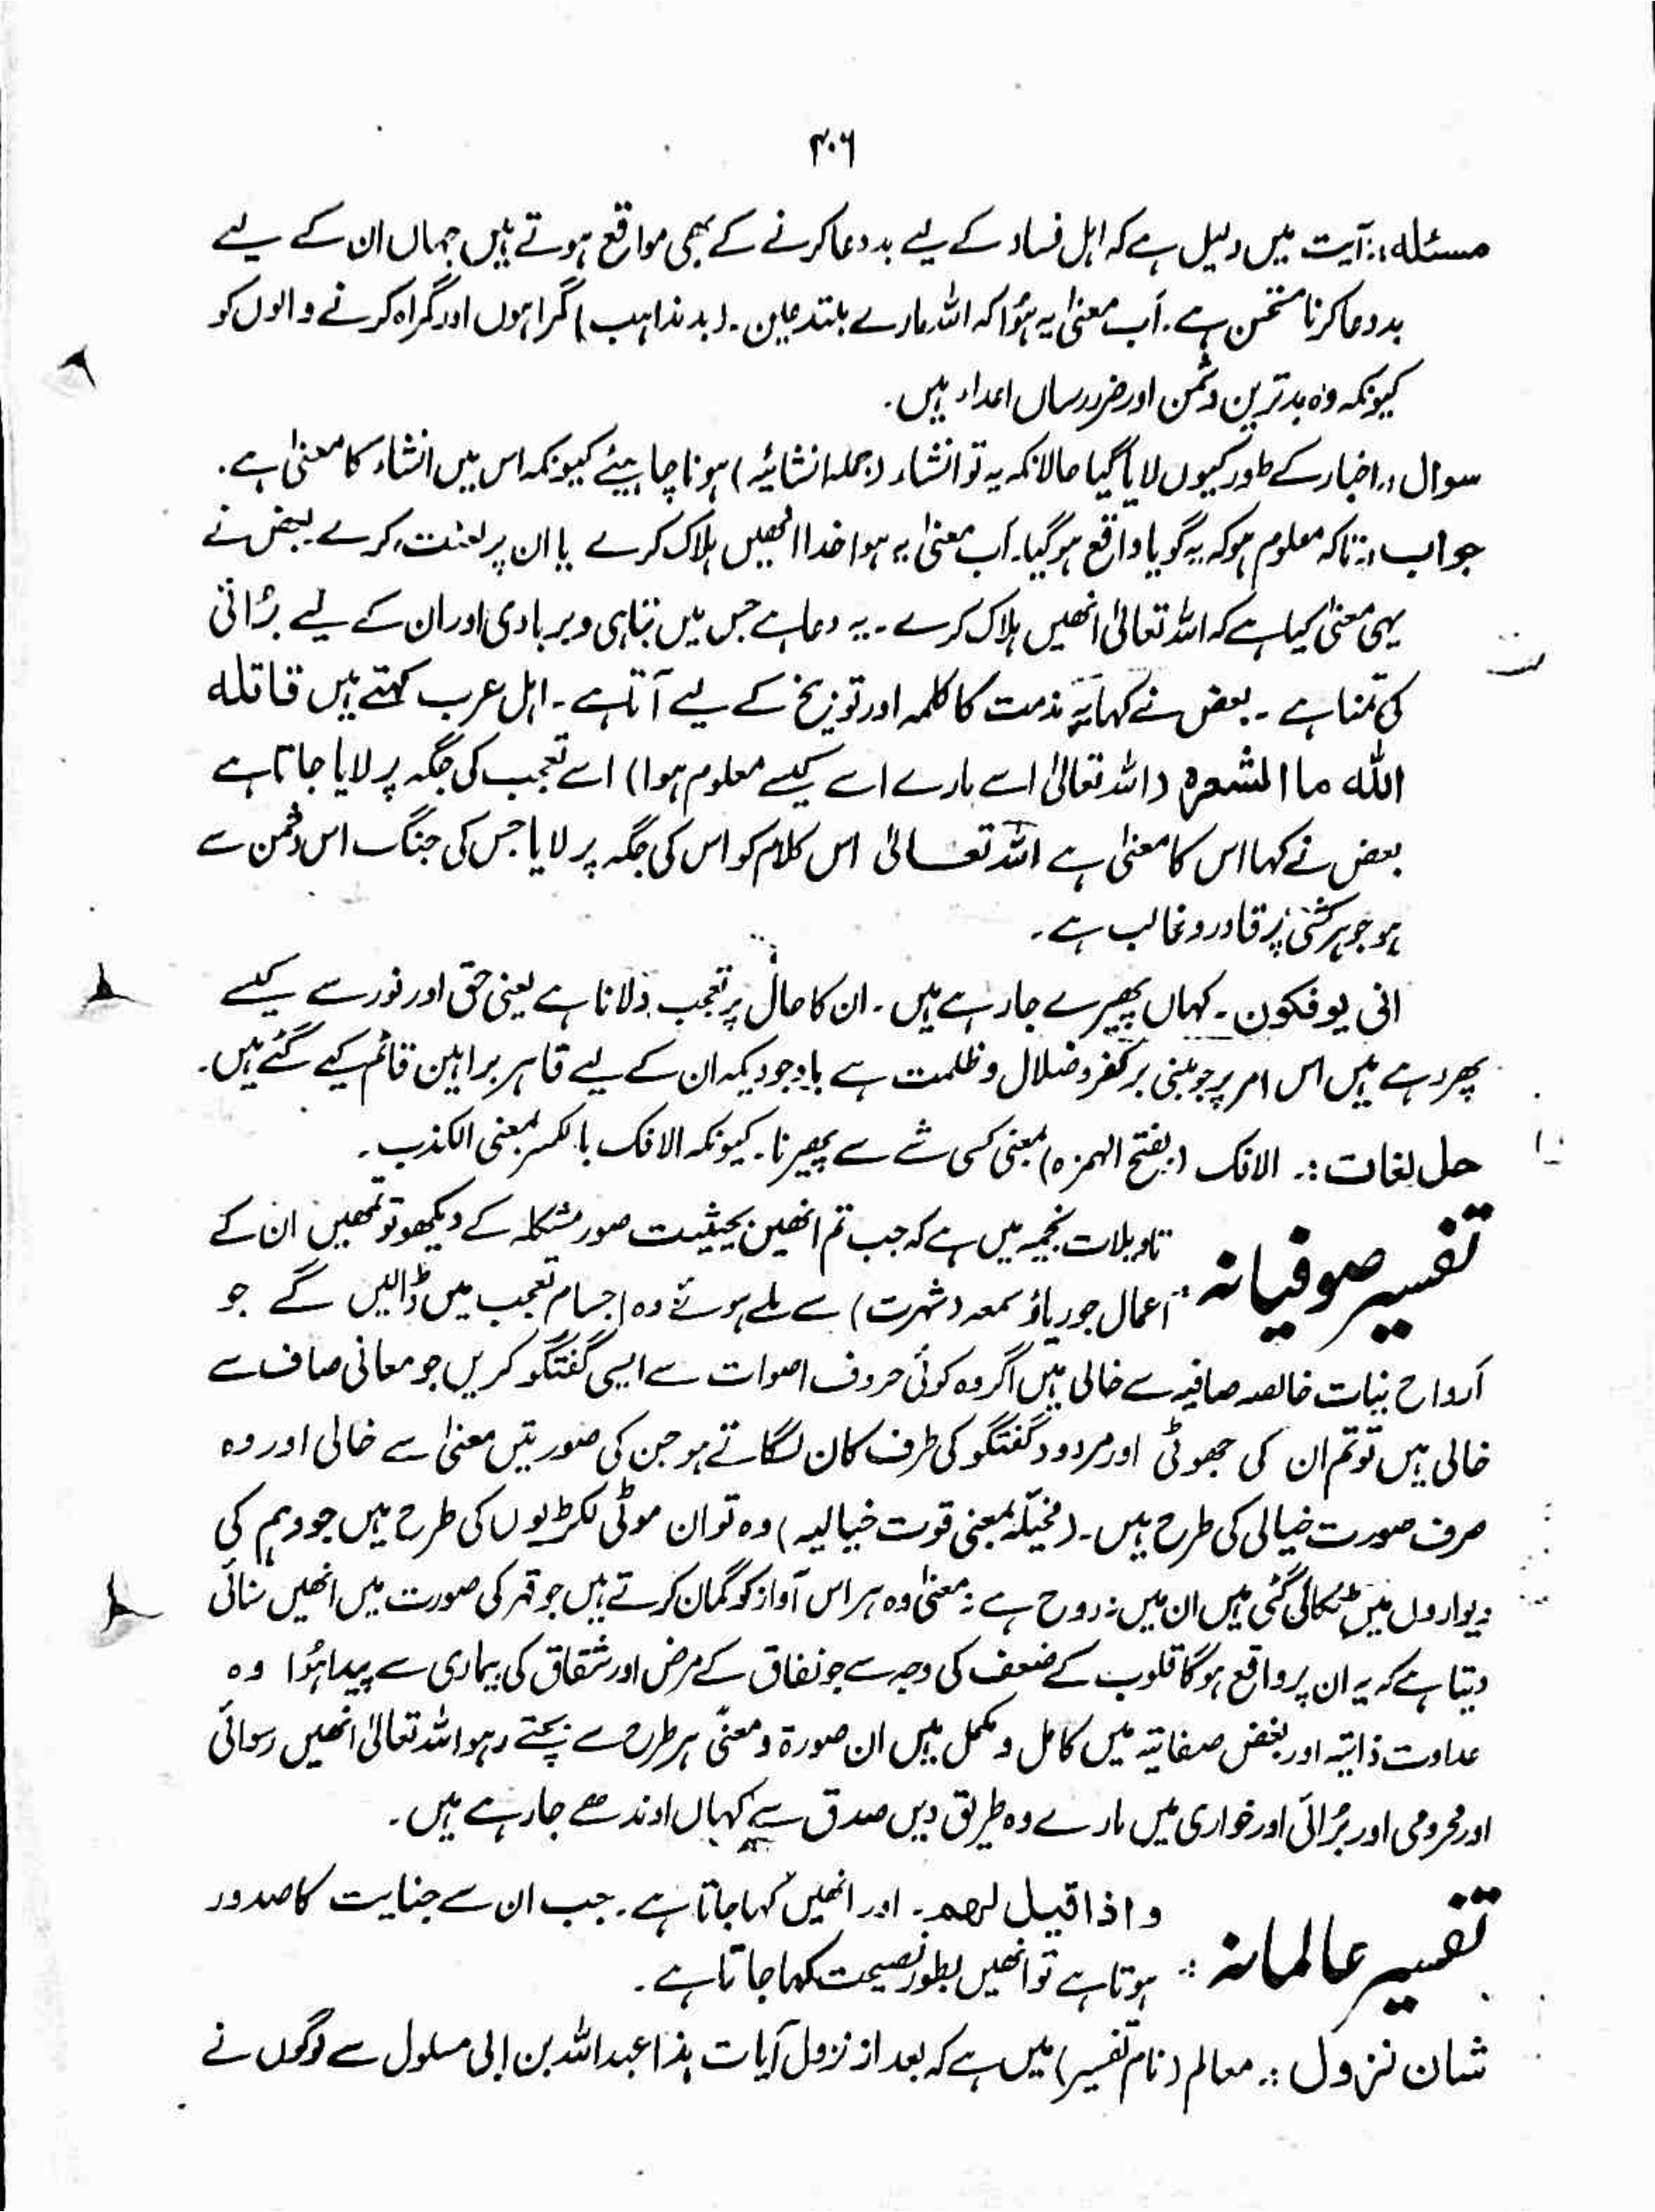 ۴۰۶
مسئلہ: آیت میں دلیل ہے کہ اہل فساد کے لیے بددعا کرنے کے بھی مواقع ہوتے ہیں جہاں ان کے لیے
بددعا کرنا مستحسن ہے۔ اَب معنیٰ یہ ہُوا کہ اللہ مارے مبتدعین۔ (بد مذاہب) گمراہوں اور گمراہ کرنے والوں کو
کیونکہ وہ بدترین دشمن اور ضرررساں اعداء ہیں۔
سوال :۔ اخبار کے طور کیوں لایا گیا حالانکہ یہ تو انشاء (جملہ انشائیہ) ہونا چاہیئے کیونکہ اس میں انشاء کا معنیٰ ہے۔
جواب :۔ تاکہ معلوم ہو کہ یہ گویا واقع ہو گیا۔ اَب معنیٰ یہ ہوا خدا انھیں ہلاک کرے یا ان پر لعنت کرے۔ بعض نے
یہی معنیٰ کیا ہے کہ اللہ تعالیٰ انھیں ہلاک کرے۔ یہ دعا ہے جس میں تباہی و بربادی اور ان کے لیے بُرائی
کی تمنا ہے۔ بعض نے کہا یہ مذمت کا کلمہ اور توبیخ کے لیے آتا ہے۔ اہل عرب کہتے ہیں قاتلہ
اللہ ما اشعرہ (اللہ تعالیٰ اسے مارے اسے کیسے معلوم ہوا) اسے تعجب کی جگہ پر لایا جاتا ہے
بعض نے کہا اس کا معنیٰ ہے اللہ تعالیٰ اس کلام کو اس کی جگہ پر لایا جس کی جنگ اس دشمن سے
ہو جو ہر شئی پر قادر و غالب ہے۔
انی یوفکون۔ کہاں پھیرے جا رہے ہیں۔ ان کا حال پر تعجب دلانا ہے یعنی حق اور نور سے کیسے
پھر رہے ہیں اس امر پر جو مبنی بر کفر و ضلال و ظلمت ہے باوجودیکہ ان کے لیے قاہر براہین قائم کیے گئے ہیں۔
حل لغات :۔ الافک (بفتح الہمزہ) بمعنی کسی شے سے پھیرنا۔ کیونکہ الافک بالکسر بمعنی الکذب۔
تفسیر صوفیانہ : تاویلات نجمیہ میں ہے کہ جب تم انھیں بحیثیت صور مشکلہ کے دیکھو تو تمھیں ان کے
اعمال جو ریاؤ سمعہ (شہرت) سے ملے ہوئے وہ اجسام تعجب میں ڈالیں گے جو
اَرواح نیات خالصہ صافیہ سے خالی ہیں اگر وہ کوئی حروف اصوات سے ایسی گفتگو کریں جو معانی صاف سے
خالی ہیں تو تم ان کی جھوٹی اور مردود گفتگو کی طرف کان لگاتے ہو جن کی صورتیں معنیٰ سے خالی اور وہ
صرف صورت خیالی کی طرح ہیں۔ (مخیّلہ بمعنی قوت خیالیہ) وہ تو ان موٹی لکڑیوں کی طرح ہیں جو وہم کی
دیواروں میں ٹکالی گئی ہیں ان میں نہ روح ہے نہ معنیٰ وہ ہر اس آواز کو گمان کرتے ہیں جو قہر کی صورت میں انھیں سنائی
دیتا ہے کہ یہ ان پر واقع ہوگا قلوب کے ضعف کی وجہ سے جو نفاق کے مرض اور شقاق کی بیماری سے پیدا ہُوا وہ
عداوت ذاتیہ اور بغض صفاتیہ میں کامل و مکمل ہیں ان صورۃ و معنیً ہر طرح سے بچتے رہو اللہ تعالیٰ انھیں رسوائی
اور محرومی اور بُرائی اور خواری میں مارے وہ طریق دیں صدق سے کہاں اوندھے جا رہے ہیں۔
تفسیر عالمانہ : واذا قیل لہم۔ اور انھیں کہا جاتا ہے۔ جب ان سے جنایت کا صدور
ہوتا ہے تو انھیں بطور نصیحت کہا جاتا ہے۔
شان نزول :۔ معالم (نام تفسیر) میں ہے کہ بعد از نزول آیات ہذا عبداللہ بن ابی سلول سے لوگوں نے